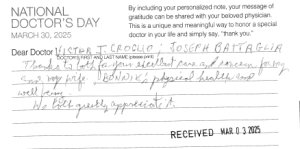 NATIONAL
DOCTOR'S DAY
MARCH 30, 2025
By including your personalized note, your message of
gratitude can be shared with your beloved physician.
This is a unique and meaningful way to honor a special
doctor in your life and simply say, "thank you."
Dear Doctor VICTOR J. CROGLIO; JOSEPH BATTAGLIA
DOCTOR'S FIRST AND LAST NAME (please print)
Thanks to both for your excellent care and concern for my
and my wife, BONNIK'S physical health and
well being.
We both greatly appreciate it.
RECEIVED MAR 03 2025